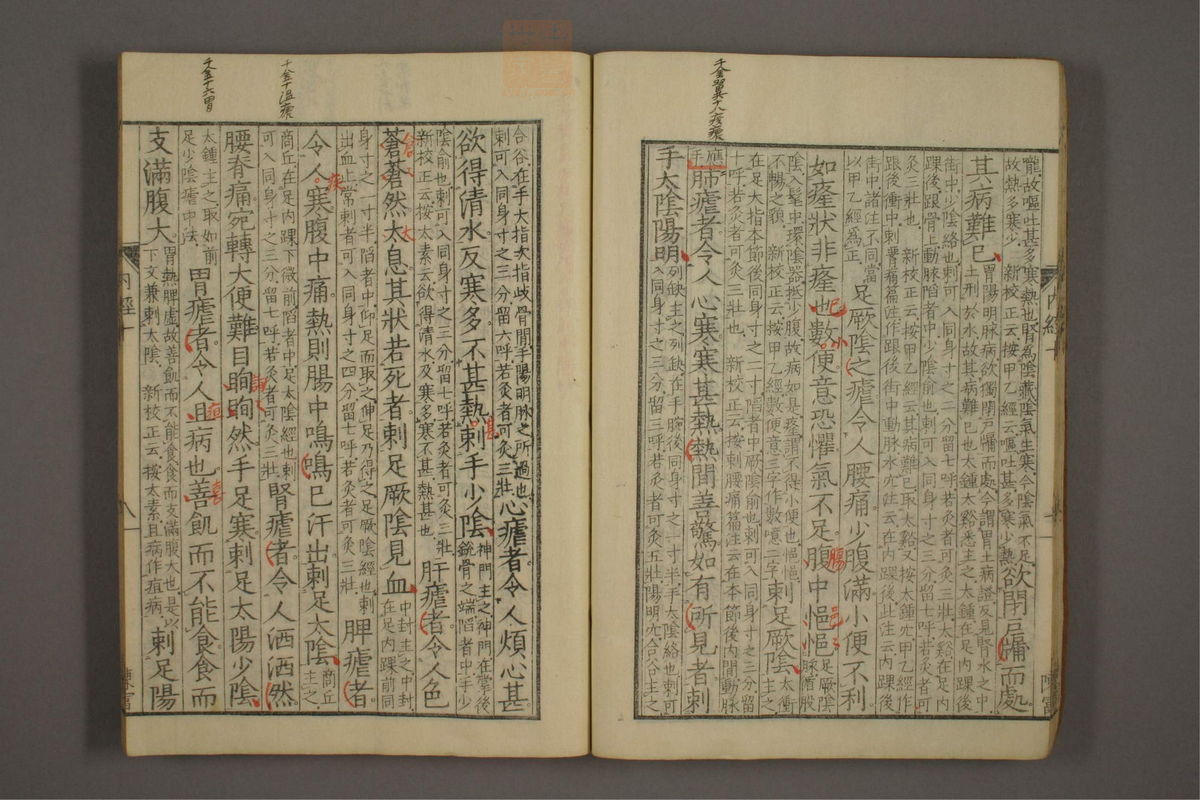 龍故嘔吐甚多寒熱也腎為陰藏陰氣生寒今陰氣不足
故熱多寒少　新校正云按甲乙經云嘔吐甚多寒少熱
欲閉戶牖而處
其病難已
胃陽明脉病欲獨閉戶牖而處今謂胃土病證反見腎水之中
土刑於水故其病難已也太鍾太谿悉主之太鍾在足内踝後
街中少陰絡也刺可入同身寸之二分留七呼若灸者可灸三壯太谿在足内
踝後跟骨上動脉陷者中少陰俞也刺可入同身寸之三分留七呼若灸者可
灸三壯也　新校正云按甲乙經云其病難已取太谿又按太鍾穴甲乙經作
跟後衝中刺痛篇注作跟後街中動脉水穴注云在内踝後此注云内踝後
街中諸注不同當
以甲乙經為正
足厥陰之瘧令人腰痛少腹滿小便不利
如癃狀非癃也數便意恐懼氣不足腹中悒悒
足厥陰
脉循股
陰入髦中環陰器抵少腹故病如是癃謂不得小便也悒悒
不暢之貌　新校正云按甲乙經數便意三字作數噫二字
刺足厥陰
太衝
主之
在足大指本節後同身寸之二寸陷者中厥陰俞也刺可入同身寸之三分留
十呼若灸者可灸三壯也　新校正云按刺腰痛篇注云在本節後内間動脉
應
手
肺瘧者令人心寒寒甚熱熱間善驚如有所見者刺
手太陰陽明
列缺主之列缺在手腕後同身寸之一寸半手太陰絡也刺可
入同身寸之三分留三呼若灸者可灸五壯陽明穴合谷主之
内經十
合谷在手大指次指歧骨間手陽明脉之所過也
刺可入同身寸之三分留六呼若灸者可灸三壯
心瘧者令人煩心甚
欲得清水反寒多不甚熱刺手少陰
神門主之神門在掌後
銳骨之端陷者中手少
陰俞也刺可入同身寸之三分留七呼若灸者可灸三壯
新校正云按太素云欲得清水及寒多寒不甚熱甚也
肝瘧者令人色
蒼蒼然太息其狀若死者刺足厥陰見血
中封主之中封
在足内踝前同
身寸之一寸半陷者中仰足而取之伸足乃得之足厥陰經也刺
出血止常刺者可入同身寸之四分留七呼若灸者可灸三壯
脾瘧者
令人寒腹中痛熱則腸中鳴鳴已汗出刺足太陰
商丘
主之
商丘在足内踝下微前陷者中足太陰經也刺
可入同身寸之三分留七呼若灸者可灸三壯
腎瘧者令人洒洒然
腰脊痛宛轉大便難目眴眴然手足寒刺足太陽少陰
太鍾主之取如前
足少陰瘧中法
胃瘧者令人且病也善飢而不能食食而
支滿腹大
胃熱脾虛故善飢而不能食食而支滿腹大也是以
下文兼刺太陰　新校正云按太素且病作疸病
刺足陽
内經十
八